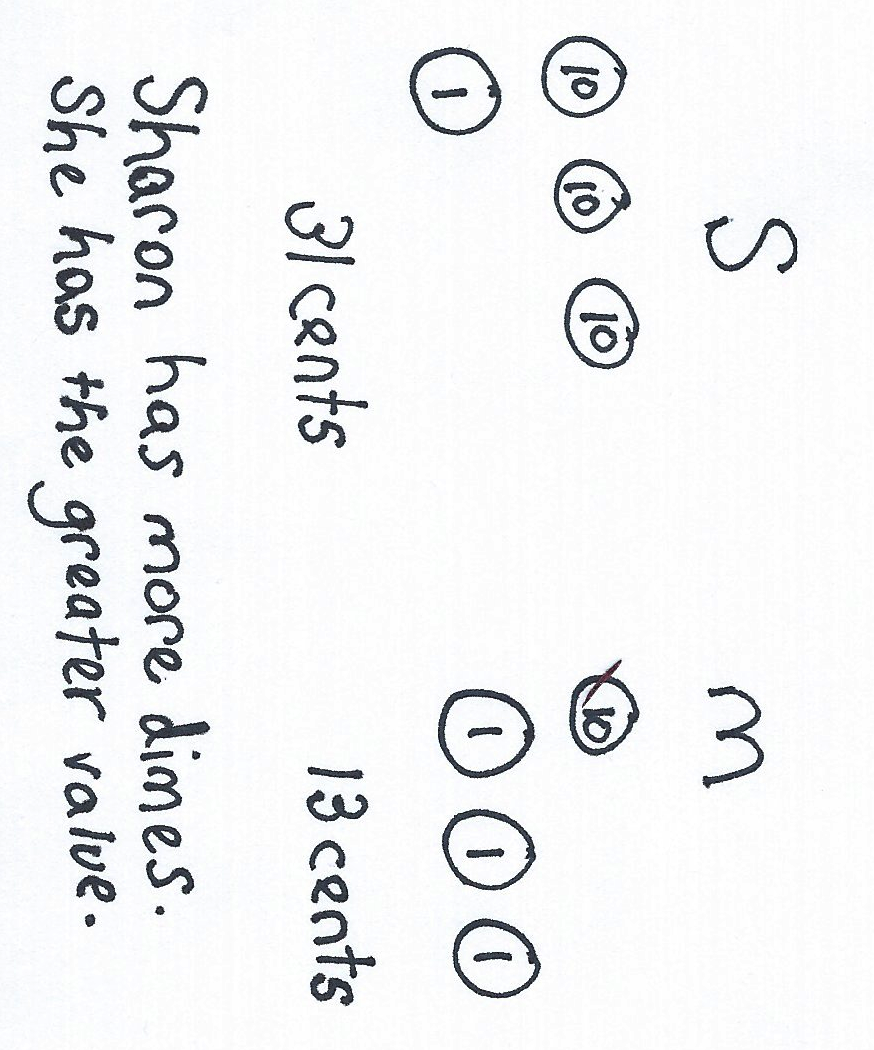 S M
10 10 10 10
1 1 1 1
31 cents 13 cents
Sharon has more dimes.
She has the greater value.